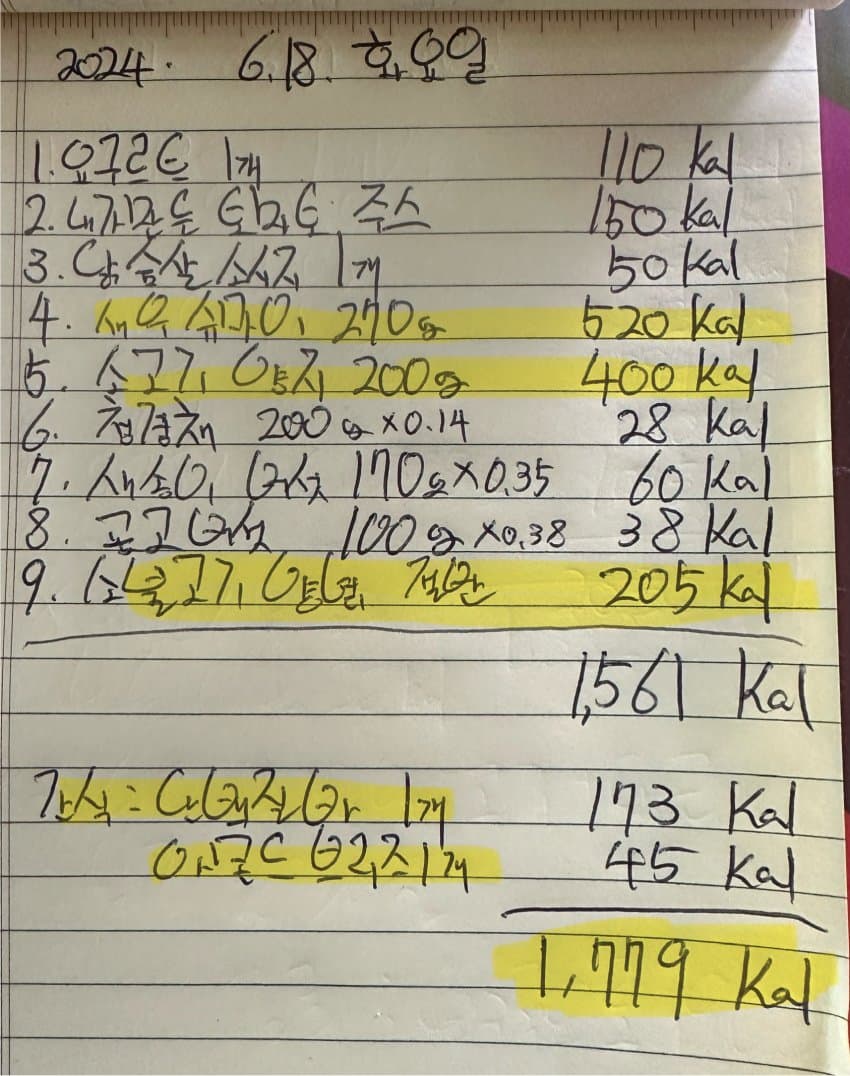 2024. 6.18. 화요일
1. 요구르트 1개 110 Kal
2. 내가만든 토마토 주스 150 Kal
3. 닭가슴살 소시지 1개 50 Kal
4. 새우 슈마이 270g 520 Kal
5. 소고기 양지 200g 400 Kal
6. 청경채 200g ×0.14 28 Kal
7. 새송이 버섯 170g×0.35 60 Kal
8. 표고버섯 100g ×0.38 38 Kal
9. 소불고기 절반 205 Kal
1,561 Kal
간식: 단백질바 1개 173 Kal
아몬드 브리즈 1개 45 Kal
1,779 Kal